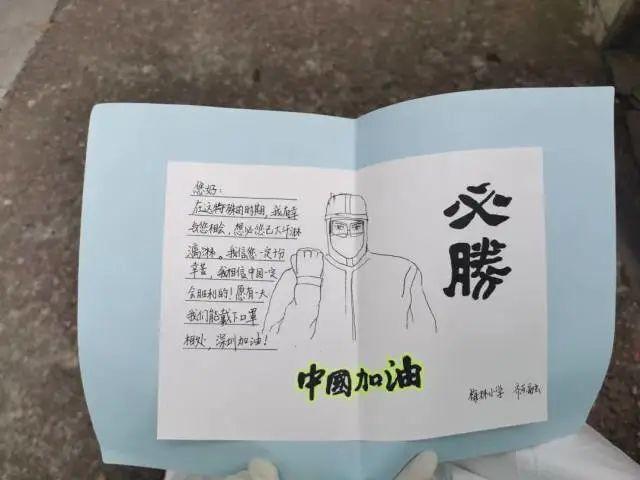 您好:
在这特殊的时期,我有幸
与您相会,想必您已大汗淋
漓淋。我信您一定十分
辛苦,我相信中国一定
会胜利的!愿有一天
我们能戴下口罩
相处,深圳加油!
必
勝
中國加油
梅林小学